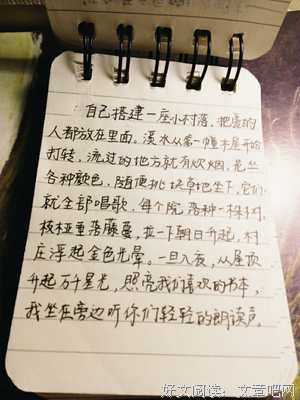 自己搭建一座小村落，把爱的
人都放在里面。溪水从第一幢木屋开始
打转，流过的地方就有炊烟，花丛
各种颜色，随便挑块草地坐下，它们
就全部唱歌，每个院落种一棵树，
枝桠垂落藤蔓，拉一下朝日升起，村
庄浮起金色光晕。一旦入夜，从屋顶
升起万千星光，照亮我们喜欢的书本，
我坐在旁边听你们轻轻的朗读声。
好文阅读： 文章吧网